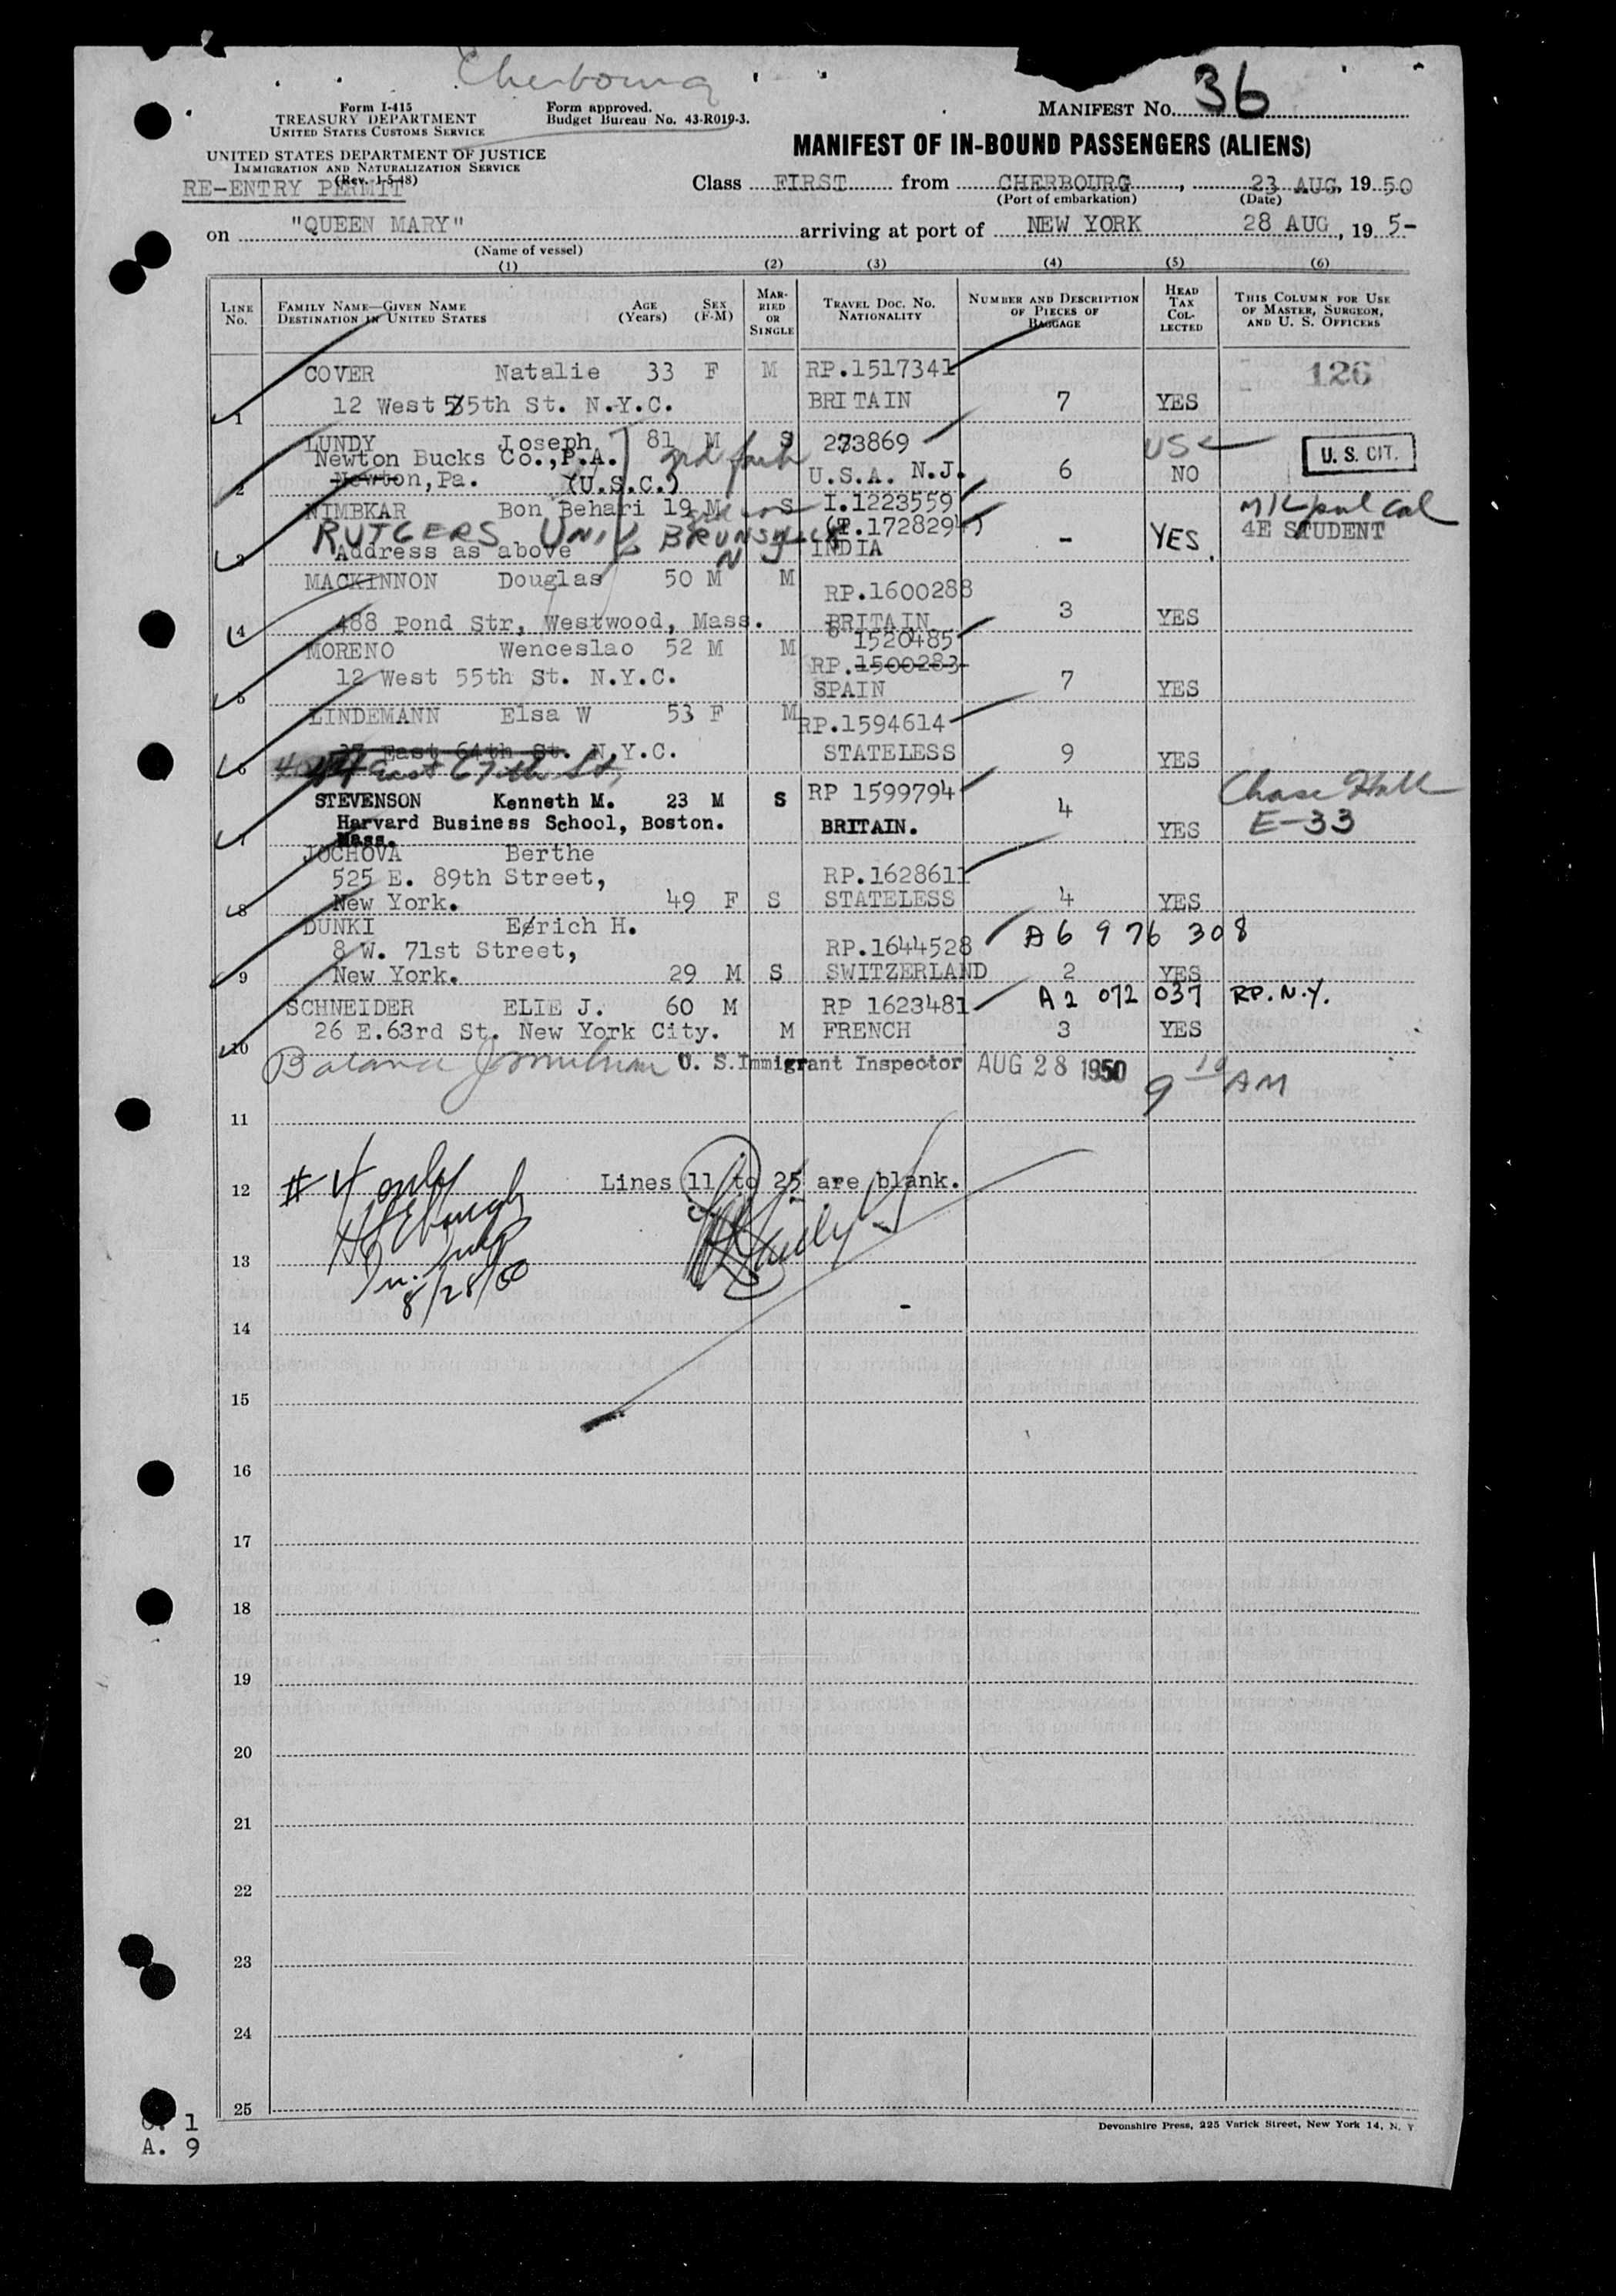 Cherbourg
Form I-415
TREASURY DEPARTMENT
UNITED STATES CUSTOMS SERVICE
Form approved.
Budget Bureau No. 43-R019-3.
MANIFEST No. 36
UNITED STATES DEPARTMENT OF JUSTICE
IMMIGRATION AND NATURALIZATION SERVICE
(Rev. 1-5-48)
RE-ENTRY PERMIT
MANIFEST OF IN-BOUND PASSENGERS (ALIENS)
Class FIRST from CHERBOURG, 23 AUG, 1950
(Port of embarkation) (Date)
on "QUEEN MARY" arriving at port of NEW YORK 28 AUG, 19 5-
(Name of vessel)
(1) (2) (3) (4) (5) (6)
LINE No. FAMILY NAME—GIVEN NAME DESTINATION IN UNITED STATES AGE (Years) SEX (F-M) MARRIED OR SINGLE TRAVEL DOC. No. NATIONALITY NUMBER AND DESCRIPTION OF PIECES OF BAGGAGE HEAD TAX COLLECTED THIS COLUMN FOR USE OF MASTER, SURGEON, AND U. S. OFFICERS
COVER Natalie 33 F M RP.1517341 126
1 12 West 55th St. N.Y.C. BRITAIN 7 YES
LUNDY Joseph 81 M S 273869 USC U. S. CIT.
Newton Bucks Co.,P.A.
2 Newton,Pa. (U.S.C.) U.S.A. N.J. 6 NO
NIMBKAR Bon Behari 19 M S I.1223559
RUTGERS UNIV BRUNSWICK N J (T.1728294) 4E STUDENT
3 Address as above INDIA - YES
MACKINNON Douglas 50 M M RP.1600288
4 488 Pond Str, Westwood, Mass. BRITAIN 3 YES
MORENO Wenceslao 52 M M 1520485
RP.1500283
5 12 West 55th St. N.Y.C. SPAIN 7 YES
LINDEMANN Elsa W 53 F M RP.1594614
6 37 East 64th St. N.Y.C. STATELESS 9 YES
East 67th St,
STEVENSON Kenneth M. 23 M S RP 1599794 4 Chase Hall
Harvard Business School, Boston. BRITAIN. YES E-33
7 Mass.
JOCHOVA Berthe
525 E. 89th Street, RP.1628611
8 New York. 49 F S STATELESS 4 YES
DUNKI Eerich H. A6 976 308
8 W. 71st Street, RP.1644528
9 New York. 29 M S SWITZERLAND 2 YES
SCHNEIDER ELIE J. 60 M RP 1623481 A2 072 037 RP. N.Y.
10 26 E.63rd St. New York City. M FRENCH 3 YES
U. S.Immigrant Inspector AUG 28 1950 9 10 AM
11
12 # 4 only Lines 11 to 25 are blank.
13
8/28/50
14
15
16
17
18
19
20
21
22
23
24
25
C. 1
A. 9
Devonshire Press, 225 Varick Street, New York 14, N. Y